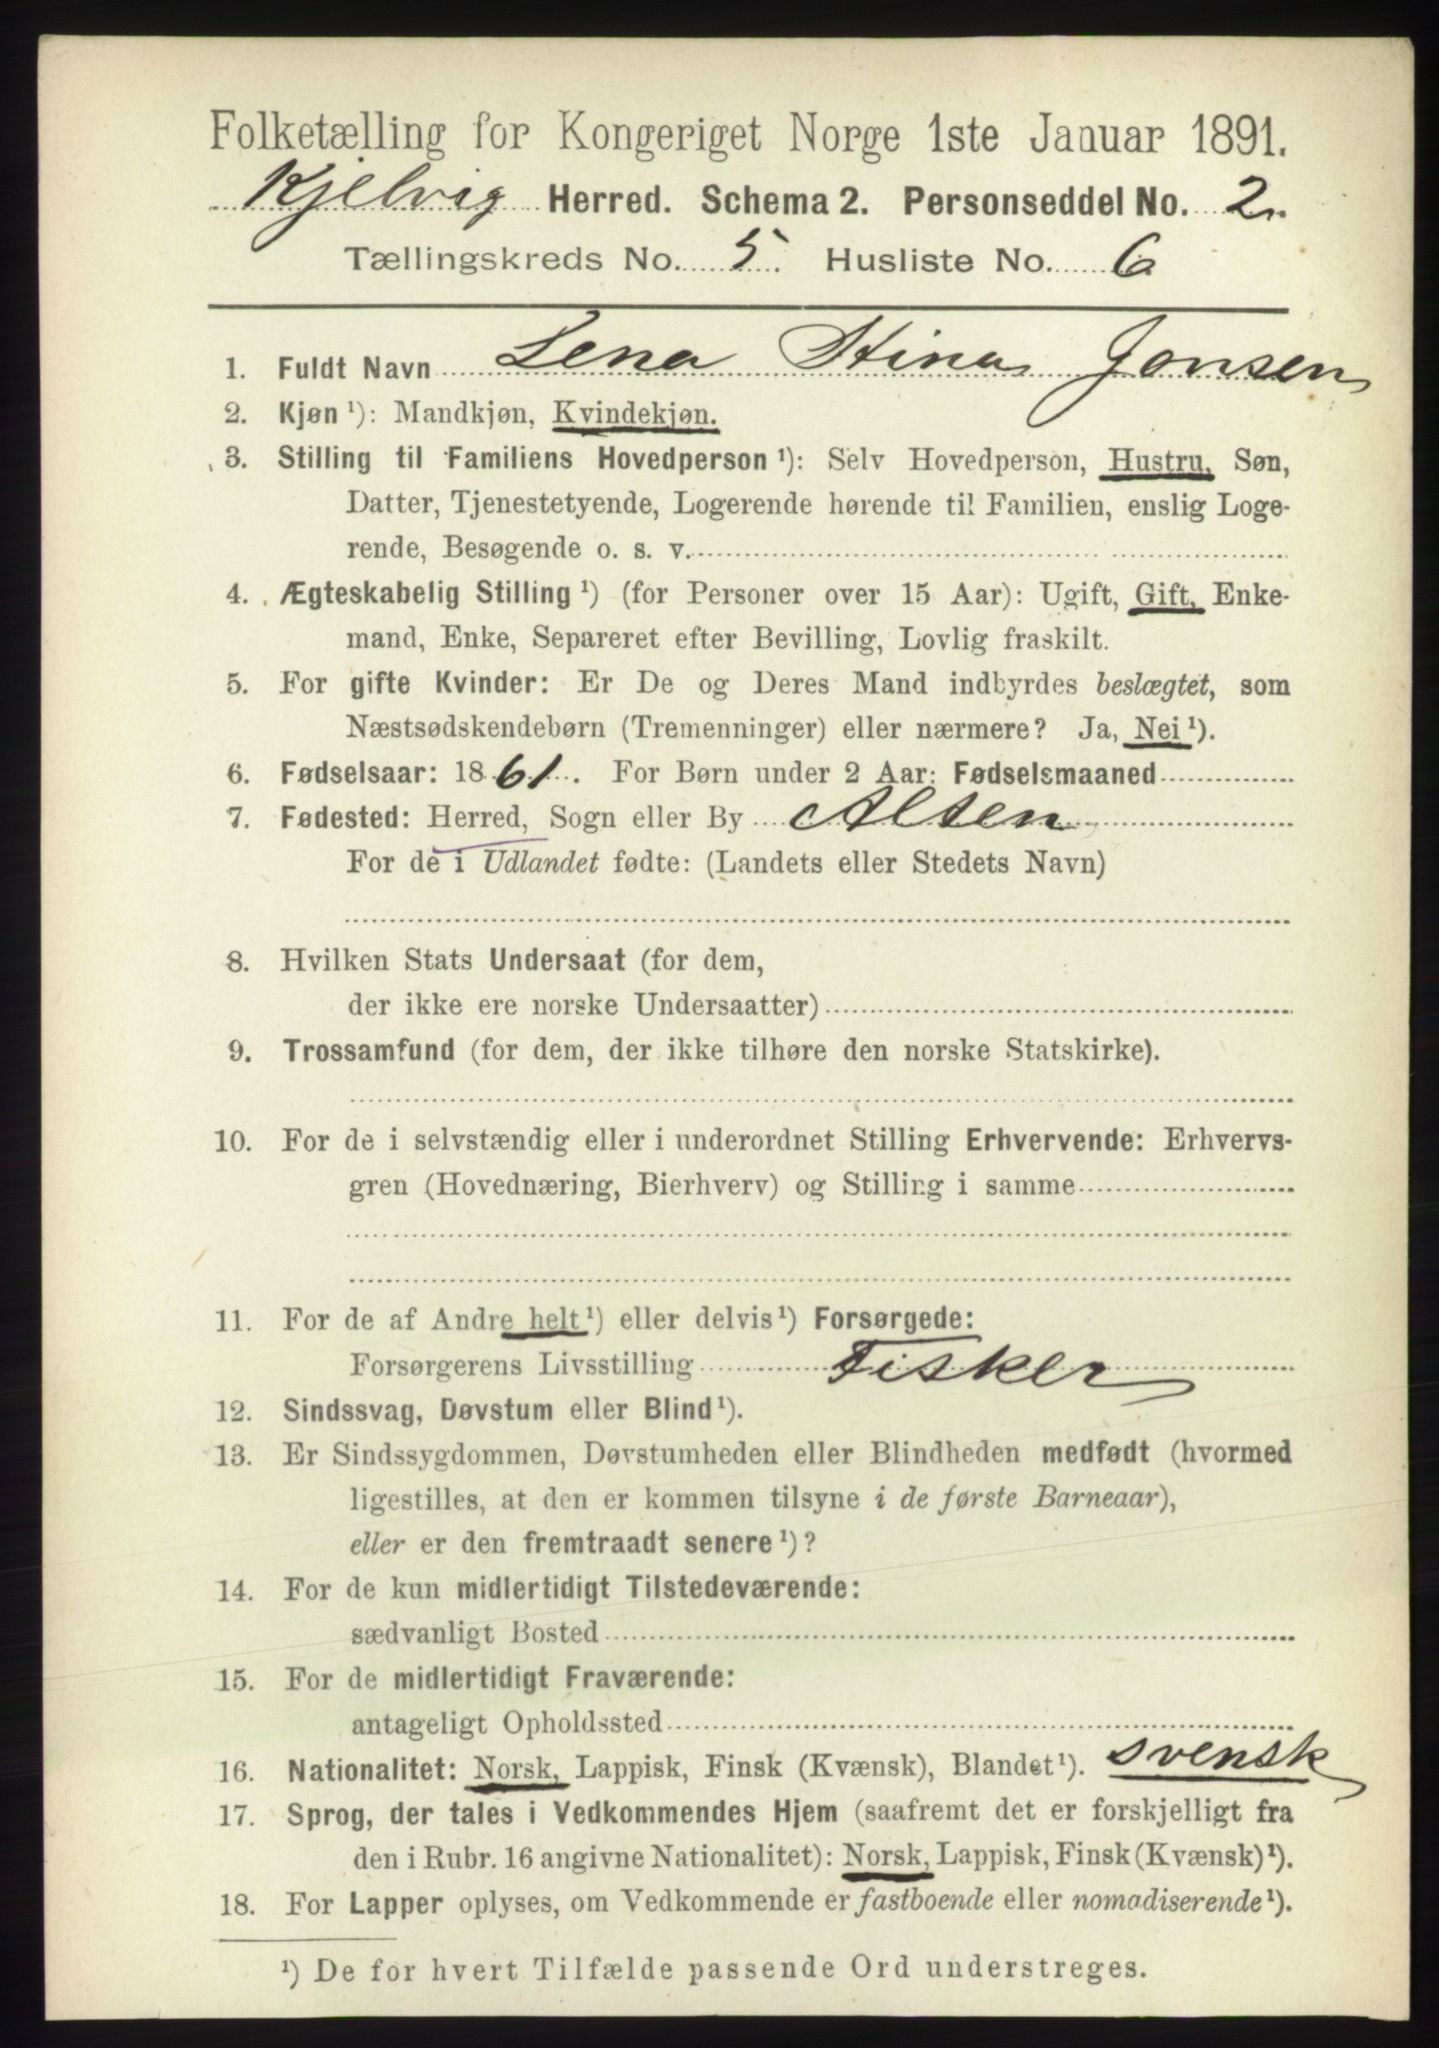 Folketælling for Kongeriget Norge 1ste Januar 1891.
Kjelvig Herred. Schema 2. Personseddel No. 2.
Tællingskreds No. 5. Husliste No. 6
1. Fuldt Navn Lena Stina Jonsen
2. Kjøn ¹): Mandkjøn, Kvindekjøn.
3. Stilling til Familiens Hovedperson ¹): Selv Hovedperson, Hustru, Søn,
Datter, Tjenestetyende, Logerende hørende til Familien, enslig Loge-
rende, Besøgende o. s. v.
4. Ægteskabelig Stilling ¹) (for Personer over 15 Aar): Ugift, Gift, Enke-
mand, Enke, Separeret efter Bevilling, Lovlig fraskilt.
5. For gifte Kvinder: Er De og Deres Mand indbyrdes beslægtet, som
Næstsødskendebørn (Tremenninger) eller nærmere? Ja, Nei ¹).
6. Fødselsaar: 1861. For Børn under 2 Aar: Fødselsmaaned
7. Fødested: Herred, Sogn eller By Alten
For de i Udlandet fødte: (Landets eller Stedets Navn)
8. Hvilken Stats Undersaat (for dem,
der ikke ere norske Undersaatter)
9. Trossamfund (for dem, der ikke tilhøre den norske Statskirke).
10. For de i selvstændig eller i underordnet Stilling Erhvervende: Erhvervs-
gren (Hovednæring, Bierhverv) og Stilling i samme
11. For de af Andre helt ¹) eller delvis ¹) Forsørgede:
Forsørgerens Livsstilling Fisker
12. Sindssvag, Døvstum eller Blind ¹).
13. Er Sindssygdommen, Døvstumheden eller Blindheden medfødt (hvormed
ligestilles, at den er kommen tilsyne i de første Barneaar),
eller er den fremtraadt senere ¹)?
14. For de kun midlertidigt Tilstedeværende:
sædvanligt Bosted
15. For de midlertidigt Fraværende:
antageligt Opholdssted
16. Nationalitet: Norsk, Lappisk, Finsk (Kvænsk), Blandet ¹). svensk
17. Sprog, der tales i Vedkommendes Hjem (saafremt det er forskjelligt fra
den i Rubr. 16 angivne Nationalitet): Norsk, Lappisk, Finsk (Kvænsk) ¹).
18. For Lapper oplyses, om Vedkommende er fastboende eller nomadiserende ¹).
¹) De for hvert Tilfælde passende Ord understreges.